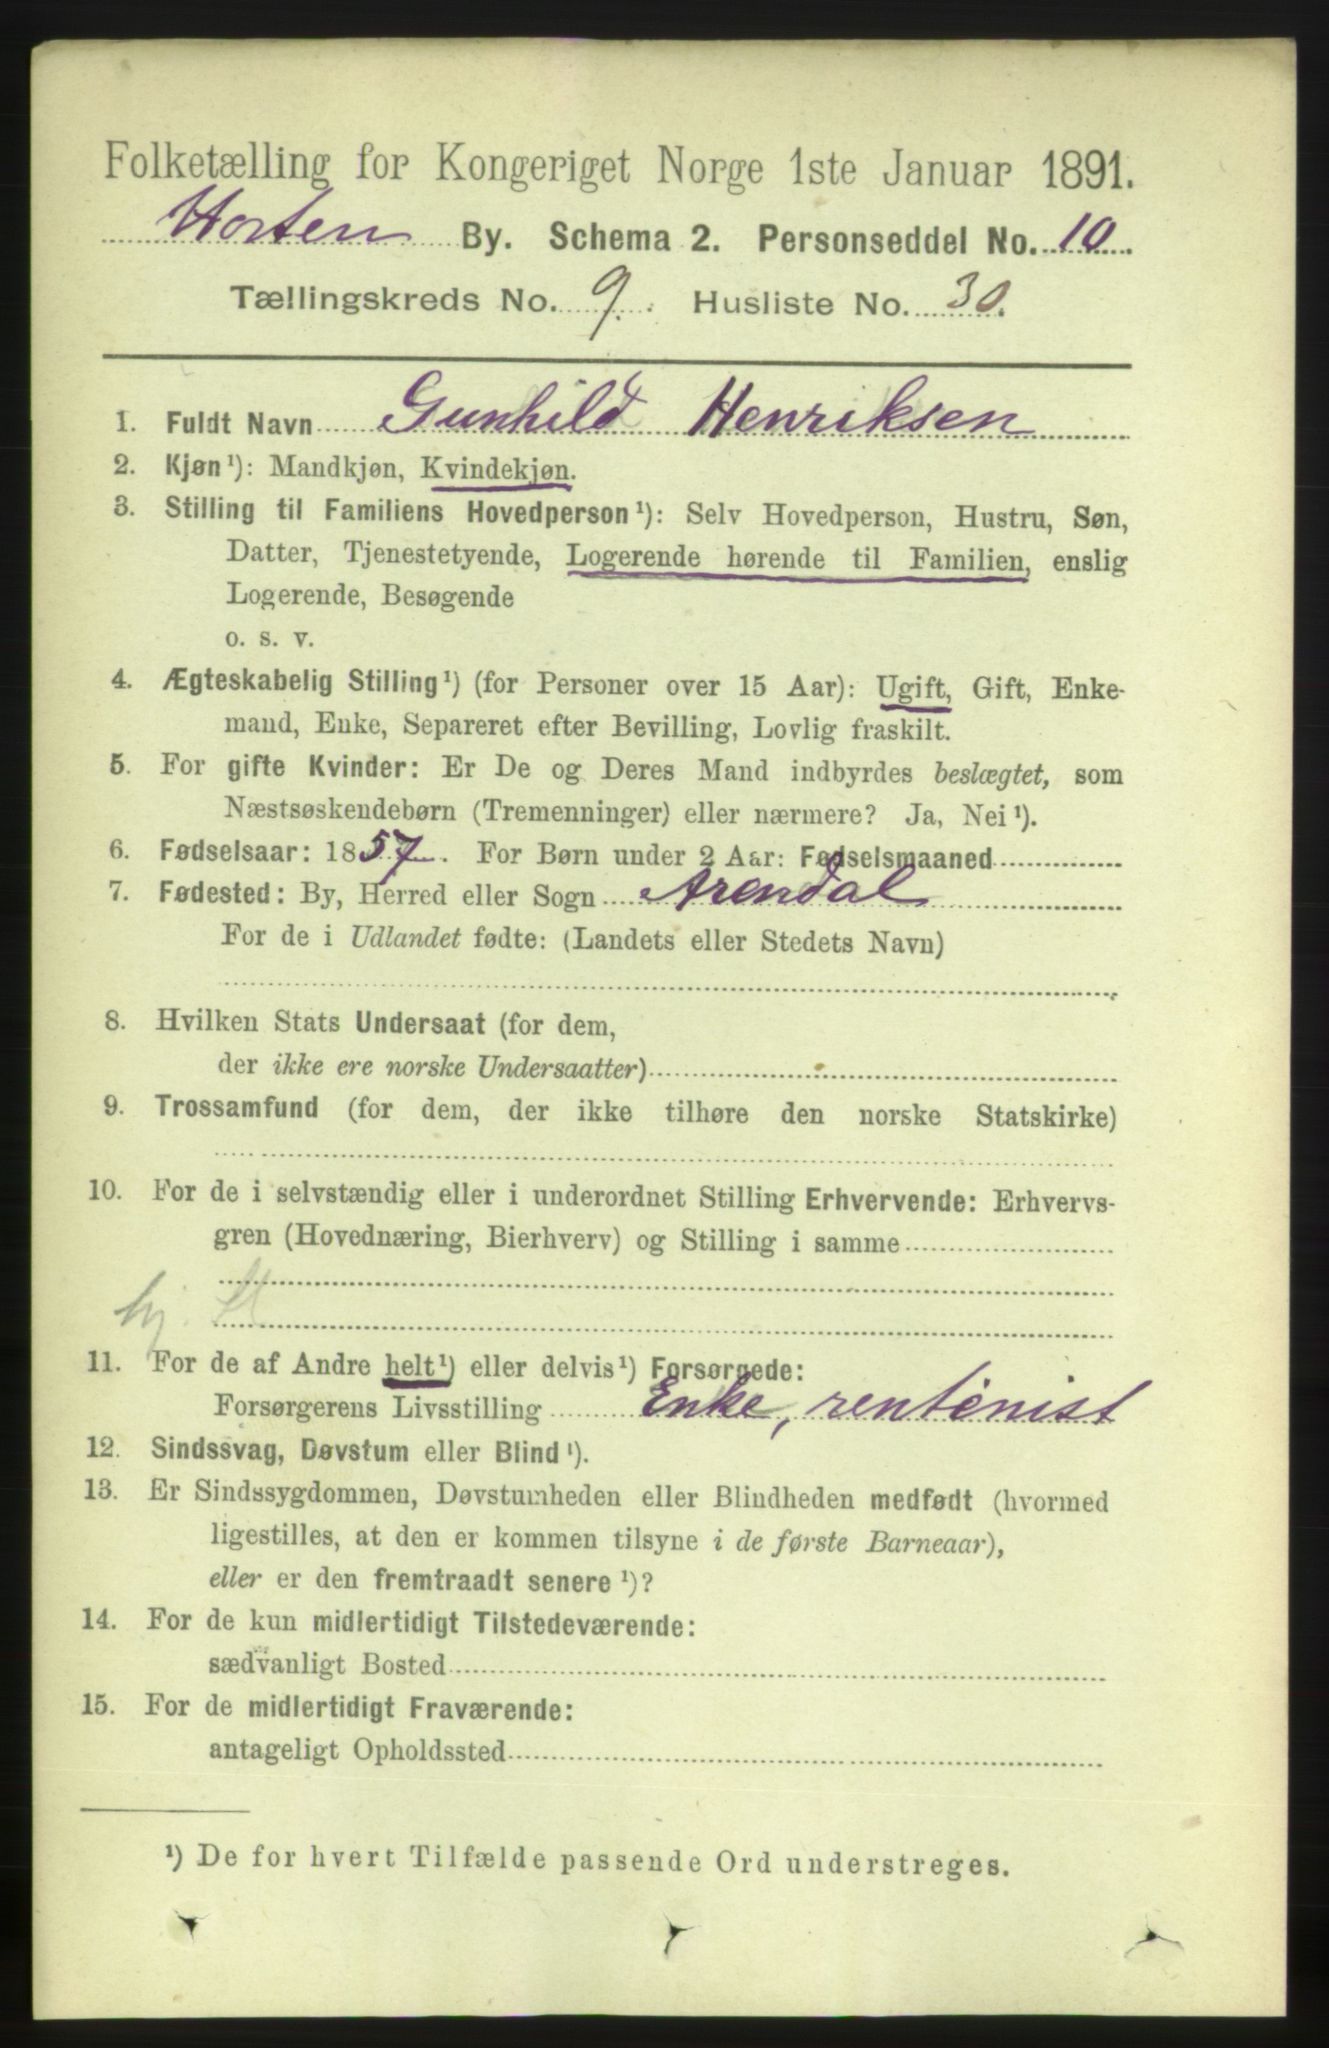 Folketælling for Kongeriget Norge 1ste Januar 1891.
Horten By. Schema 2. Personseddel No. 10.
Tællingskreds No. 9. Husliste No. 30.
1. Fuldt Navn Gunhild Henriksen
2. Kjøn¹): Mandkjøn, Kvindekjøn.
3. Stilling til Familiens Hovedperson¹): Selv Hovedperson, Hustru, Søn,
Datter, Tjenestetyende, Logerende hørende til Familien, enslig
Logerende, Besøgende
o. s. v.
4. Ægteskabelig Stilling¹) (for Personer over 15 Aar): Ugift, Gift, Enke-
mand, Enke, Separeret efter Bevilling, Lovlig fraskilt.
5. For gifte Kvinder: Er De og Deres Mand indbyrdes beslægtet, som
Næstsøskendebørn (Tremenninger) eller nærmere? Ja, Nei¹).
6. Fødselsaar: 1857. For Børn under 2 Aar: Fødselsmaaned
7. Fødested: By, Herred eller Sogn Arendal
For de i Udlandet fødte: (Landets eller Stedets Navn)
8. Hvilken Stats Undersaat (for dem,
der ikke ere norske Undersaatter)
9. Trossamfund (for dem, der ikke tilhøre den norske Statskirke)
10. For de i selvstændig eller i underordnet Stilling Erhvervende: Erhvervs-
gren (Hovednæring, Bierhverv) og Stilling i samme
11. For de af Andre helt¹) eller delvis¹) Forsørgede:
Forsørgerens Livsstilling Enke, rentenist
12. Sindssvag, Døvstum eller Blind¹).
13. Er Sindssygdommen, Døvstumheden eller Blindheden medfødt (hvormed
ligestilles, at den er kommen tilsyne i de første Barneaar),
eller er den fremtraadt senere¹)?
14. For de kun midlertidigt Tilstedeværende:
sædvanligt Bosted
15. For de midlertidigt Fraværende:
antageligt Opholdssted
¹) De for hvert Tilfælde passende Ord understreges.